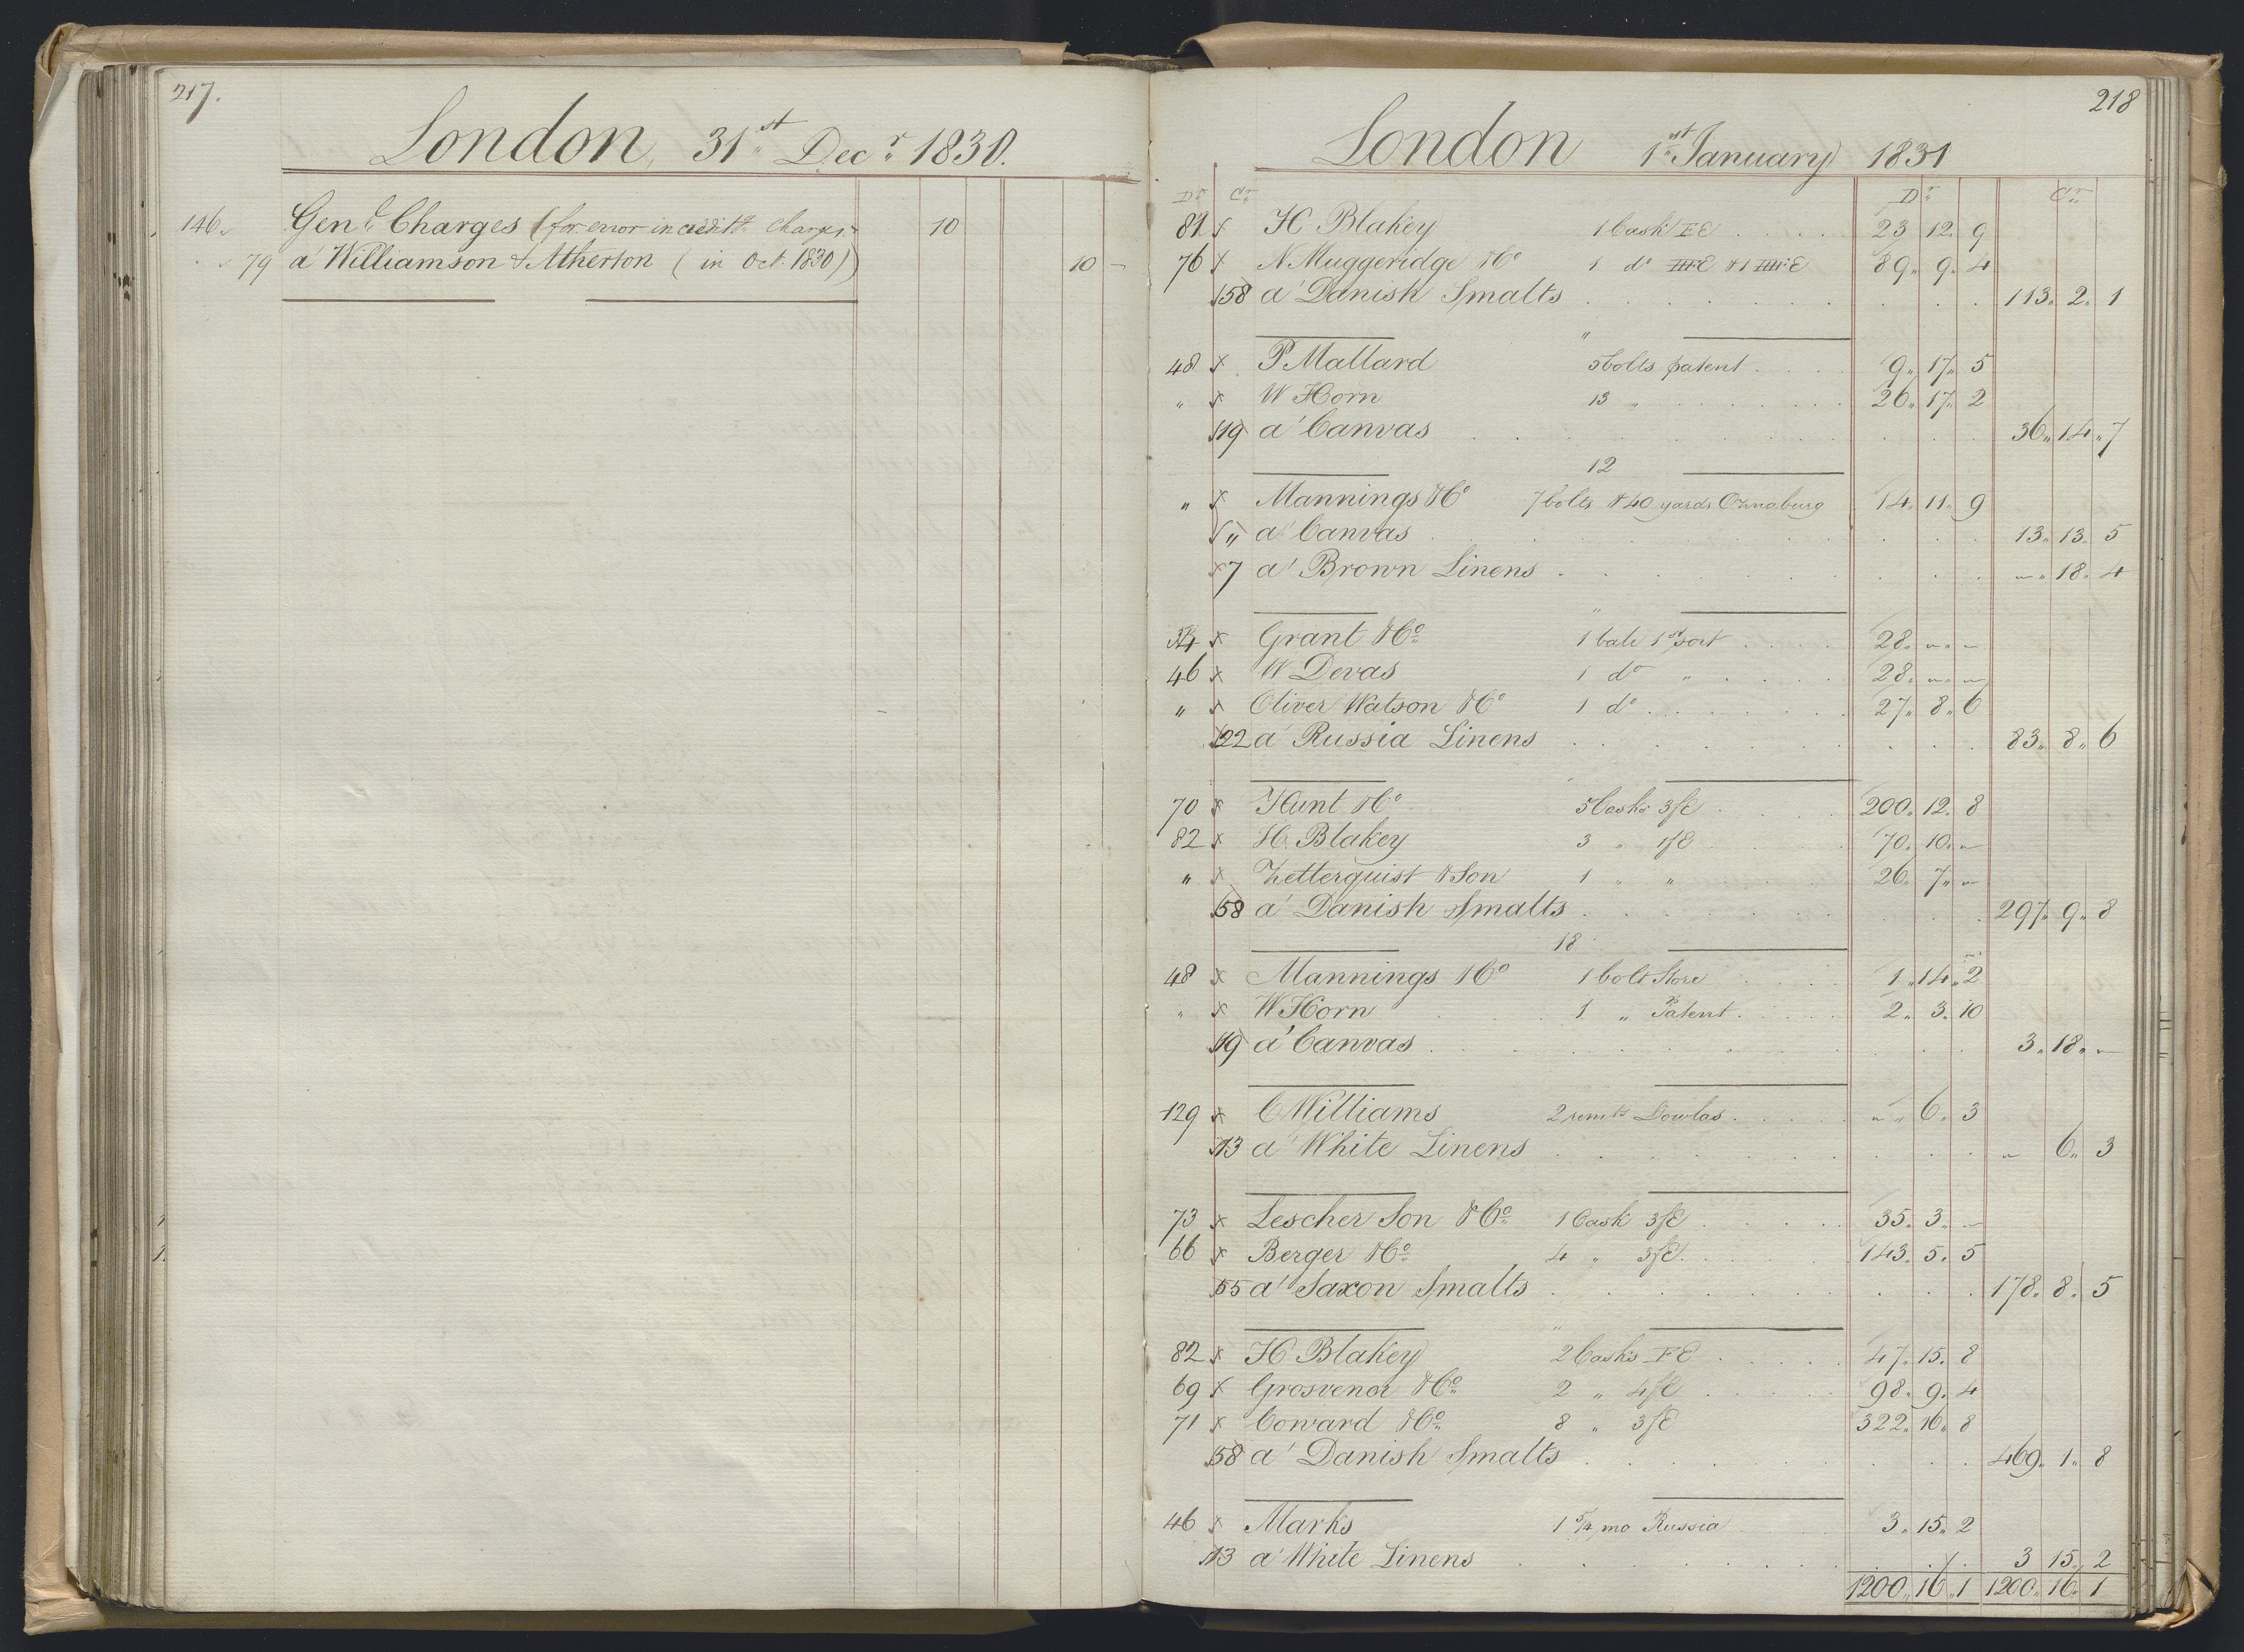 217.
London, 31st Decr 1830.
146 Genl Charges (for error in credit charges 10
79 a Williamson & Atherton (in Oct. 1830)) 10 –
218
London 1st January 1831
Dr Cr Dr Cr
81 H Blakey 1 Cask FE 23 12 9
76 N Muggeridge & Co 1 do 89 9 4
158 a Danish Smalts 113 2 1
"
48 P Mallard 5 bolts patent 9 17 5
" W Horn 13 " 26 17 2
119 a Canvas 36 14 7
12
" Mannings & Co 7 bolts & 40 yards Oznaburg 14 11 9
" a Canvas 13 13 5
7 a Brown Linens – 18 4
"
34 Grant & Co 1 bale 1st sort 28 – –
46 W Devas 1 do " 28 – –
" Oliver Watson & Co 1 do 27 8 6
122 a Russia Linens 83 8 6
70 Hunt & Co 5 Casks 3/E 200 12 8
82 H Blakey 3 " 1/E 70 10 –
" Zetterquist & Son 1 " " 26 7 –
158 a Danish Smalts 297 9 8
18
48 Mannings & Co 1 bolt Store 1 14 2
" W Horn 1 " Patent 2 3 10
119 a Canvas 3 18 –
129 C Williams 2 remts Dowlas – 6 3
13 a White Linens – 6 3
73 Lescher Son & Co 1 Cask 3/E 35 3 –
66 Berger & Co 4 " 3/E 143 5 5
155 a Saxon Smalts 178 8 5
"
82 H Blakey 2 Casks FE 47 15 8
69 Grosvenor & Co 2 " 4/E 98 9 4
71 Coward & Co 8 " 3/E 322 16 8
158 a Danish Smalts 469 1 8
46 Marks 1 5/4 Russia 3 15 2
13 a White Linens 3 15 2
1200 16 1 1200 16 1